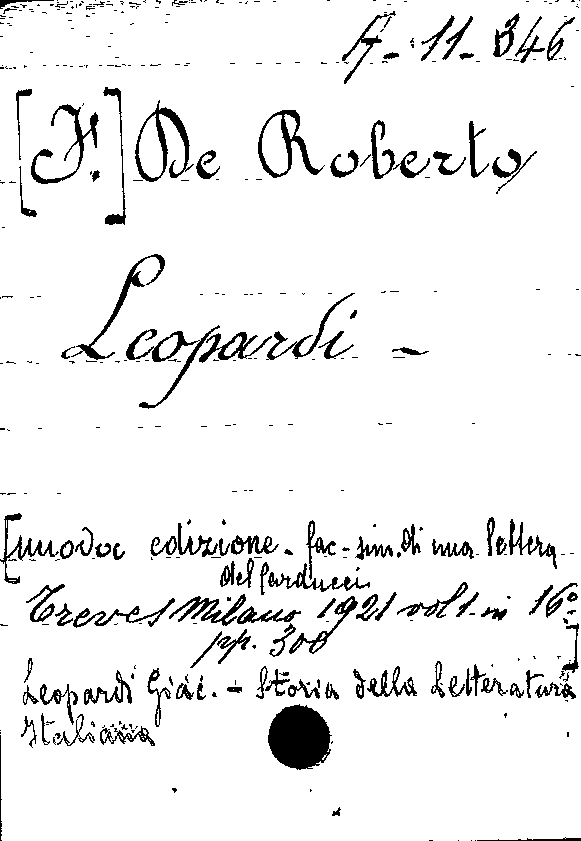 A-11-346
[F.] De Roberto
Leopardi -
[nuova edizione - fac-sim. di una lettera
del Carducci
Treves Milano 1921 vol 1 in 16°
pp. 300]
Leopardi Giac. - Storia della Letteratura
Italiana